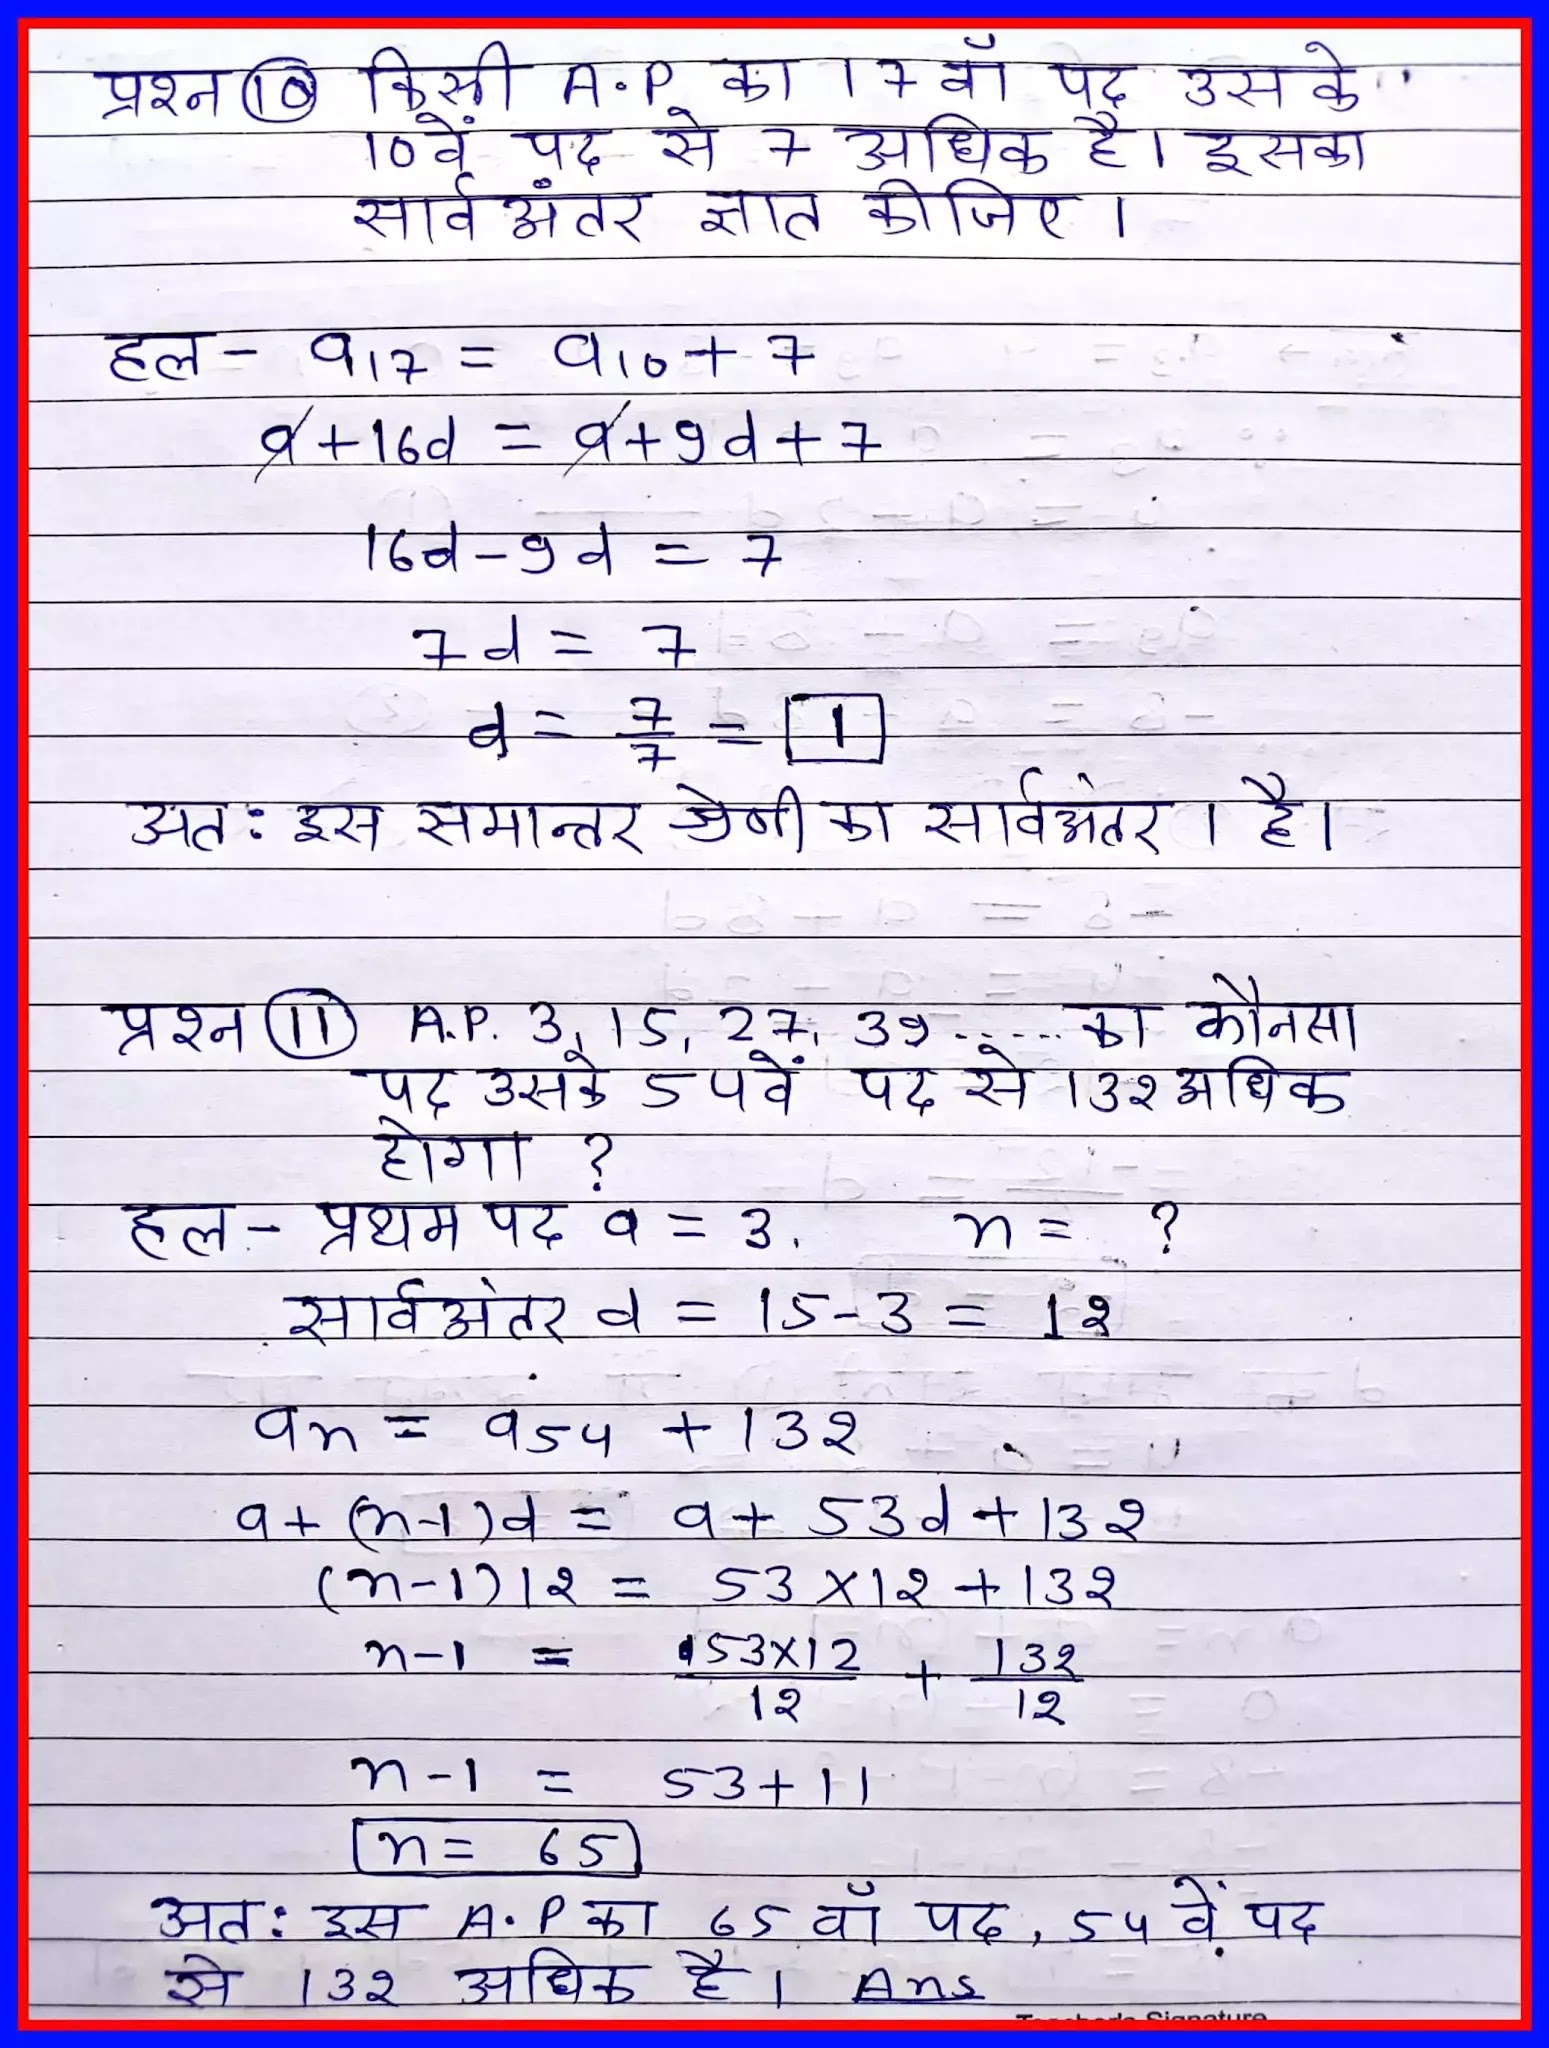 प्रश्न 10 किसी A.P. का 17 वाँ पद उसके
10वें पद से 7 अधिक है। इसका
सार्वअंतर ज्ञात कीजिए।
हल - a17 = a10 + 7
a + 16d = a + 9d + 7
16d - 9d = 7
7d = 7
d = 7/7 = 1
अतः इस समान्तर श्रेणी का सार्वअंतर 1 है।
प्रश्न 11 A.P. 3, 15, 27, 39 ...... का कौनसा
पद उसके 54वें पद से 132 अधिक
होगा ?
हल - प्रथम पद a = 3, n = ?
सार्वअंतर d = 15 - 3 = 12
an = a54 + 132
a + (n-1)d = a + 53d + 132
(n-1)12 = 53 × 12 + 132
n-1 = 53×12/12 + 132/12
n-1 = 53 + 11
n = 65
अतः इस A.P का 65 वाँ पद, 54 वें पद
से 132 अधिक है। Ans